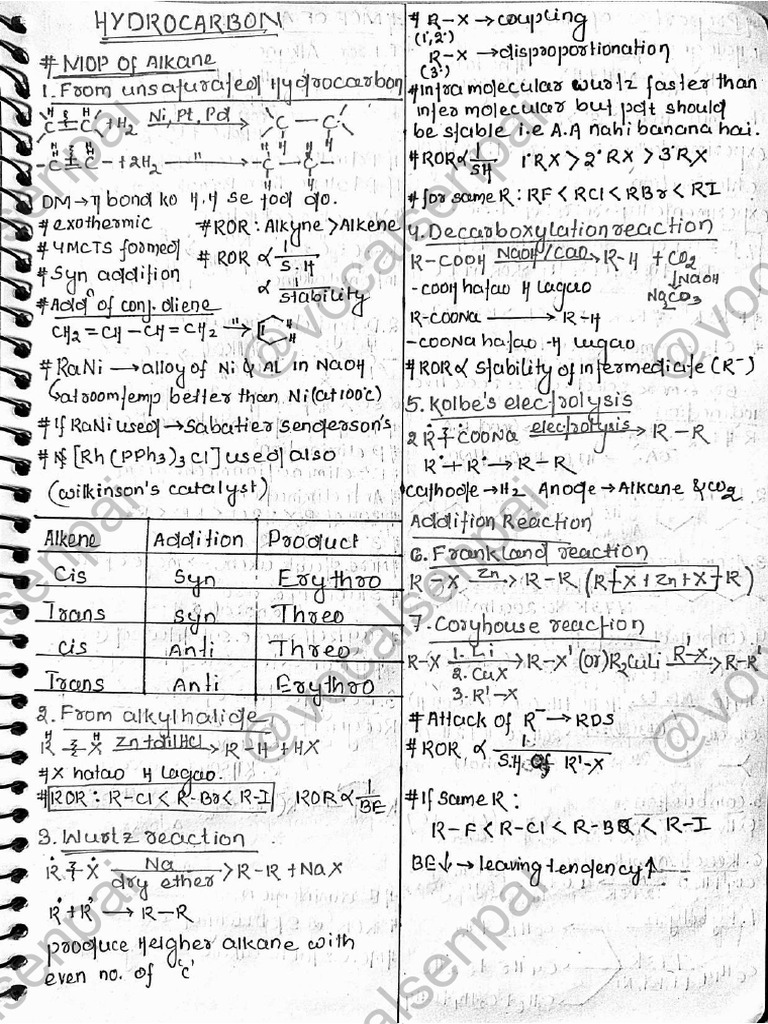 HYDROCARBON
# MOP of Alkane
1. From unsaturated Hydrocarbon
C=C + H2 Ni, Pt, Pd → C—C
-C≡C- + 2H2 → -C-C-
DM → π bond ko H, H se tod do.
# exothermic # ROR : Alkyne > Alkene
# 4MCTS formed # ROR ∝ 1/S.H
# Syn addition ∝ 1/stability
# Addn of conj. diene
CH2=CH-CH=CH2 "→
# RaNi → alloy of Ni & AL in NaOH
(at room temp better than Ni (at 100°C)
# If RaNi used → Sabatier Senderson's
# If [Rh(PPh3)3Cl] used also
(wilkinson's catalyst)
Alkene Addition Product
Cis Syn Erythro
Trans Syn Threo
cis Anti Threo
Trans Anti Erythro
2. From alkylhalide
R-X Zn+dil HCl → R-H + HX
# X hatao H lagao.
# ROR : R-Cl < R-Br < R-I ROR ∝ 1/BE
3. Wurtz reaction
R-X Na dry ether → R-R + NaX
R• + R• → R-R
produce Heigher alkane with
even no. of 'c'
# R-X → coupling
(1°,2°)
R-X → disproportionation
(3°)
# Intra molecular wurtz faster than
inter molecular but pdt should
be stable i.e A.A nahi banana hai.
# ROR ∝ 1/SH 1°RX > 2°RX > 3°RX
# for same R: RF < RCl < RBr < RI
4. Decarboxylation reaction
R-COOH NaOH/CaO → R-H + CO2
-COOH hatao H lagao ↓NaOH
Na2CO3
R-COONa → R-H
-COONa hatao -H lagao
# ROR ∝ stability of intermediate (R⁻)
5. Kolbe's electrolysis
2R-COONa electrolysis → R-R
R• + R• → R-R
Cathode → H2 Anode → Alkane & CO2
Addition Reaction
6. Frankland reaction
R-X Zn → R-R (R+X+Zn+X+R)
7. Coryhouse reaction
R-X 1. Li 2. CuX 3. R'-X → R-X' (or) R2CuLi R'-X → R-R'
# Attack of R⁻ → RDS
# ROR ∝ 1/S.H of R'-X
# If same R :
R-F < R-Cl < R-BR < R-I
BE↓ → leaving tendency ↑
@vocalsenpai